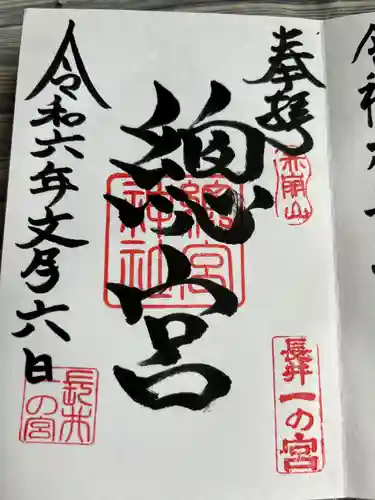 奉拜
赤崩山
長井一の宮
總宮
總宮神社
令和六年文月六日
長井一の宮